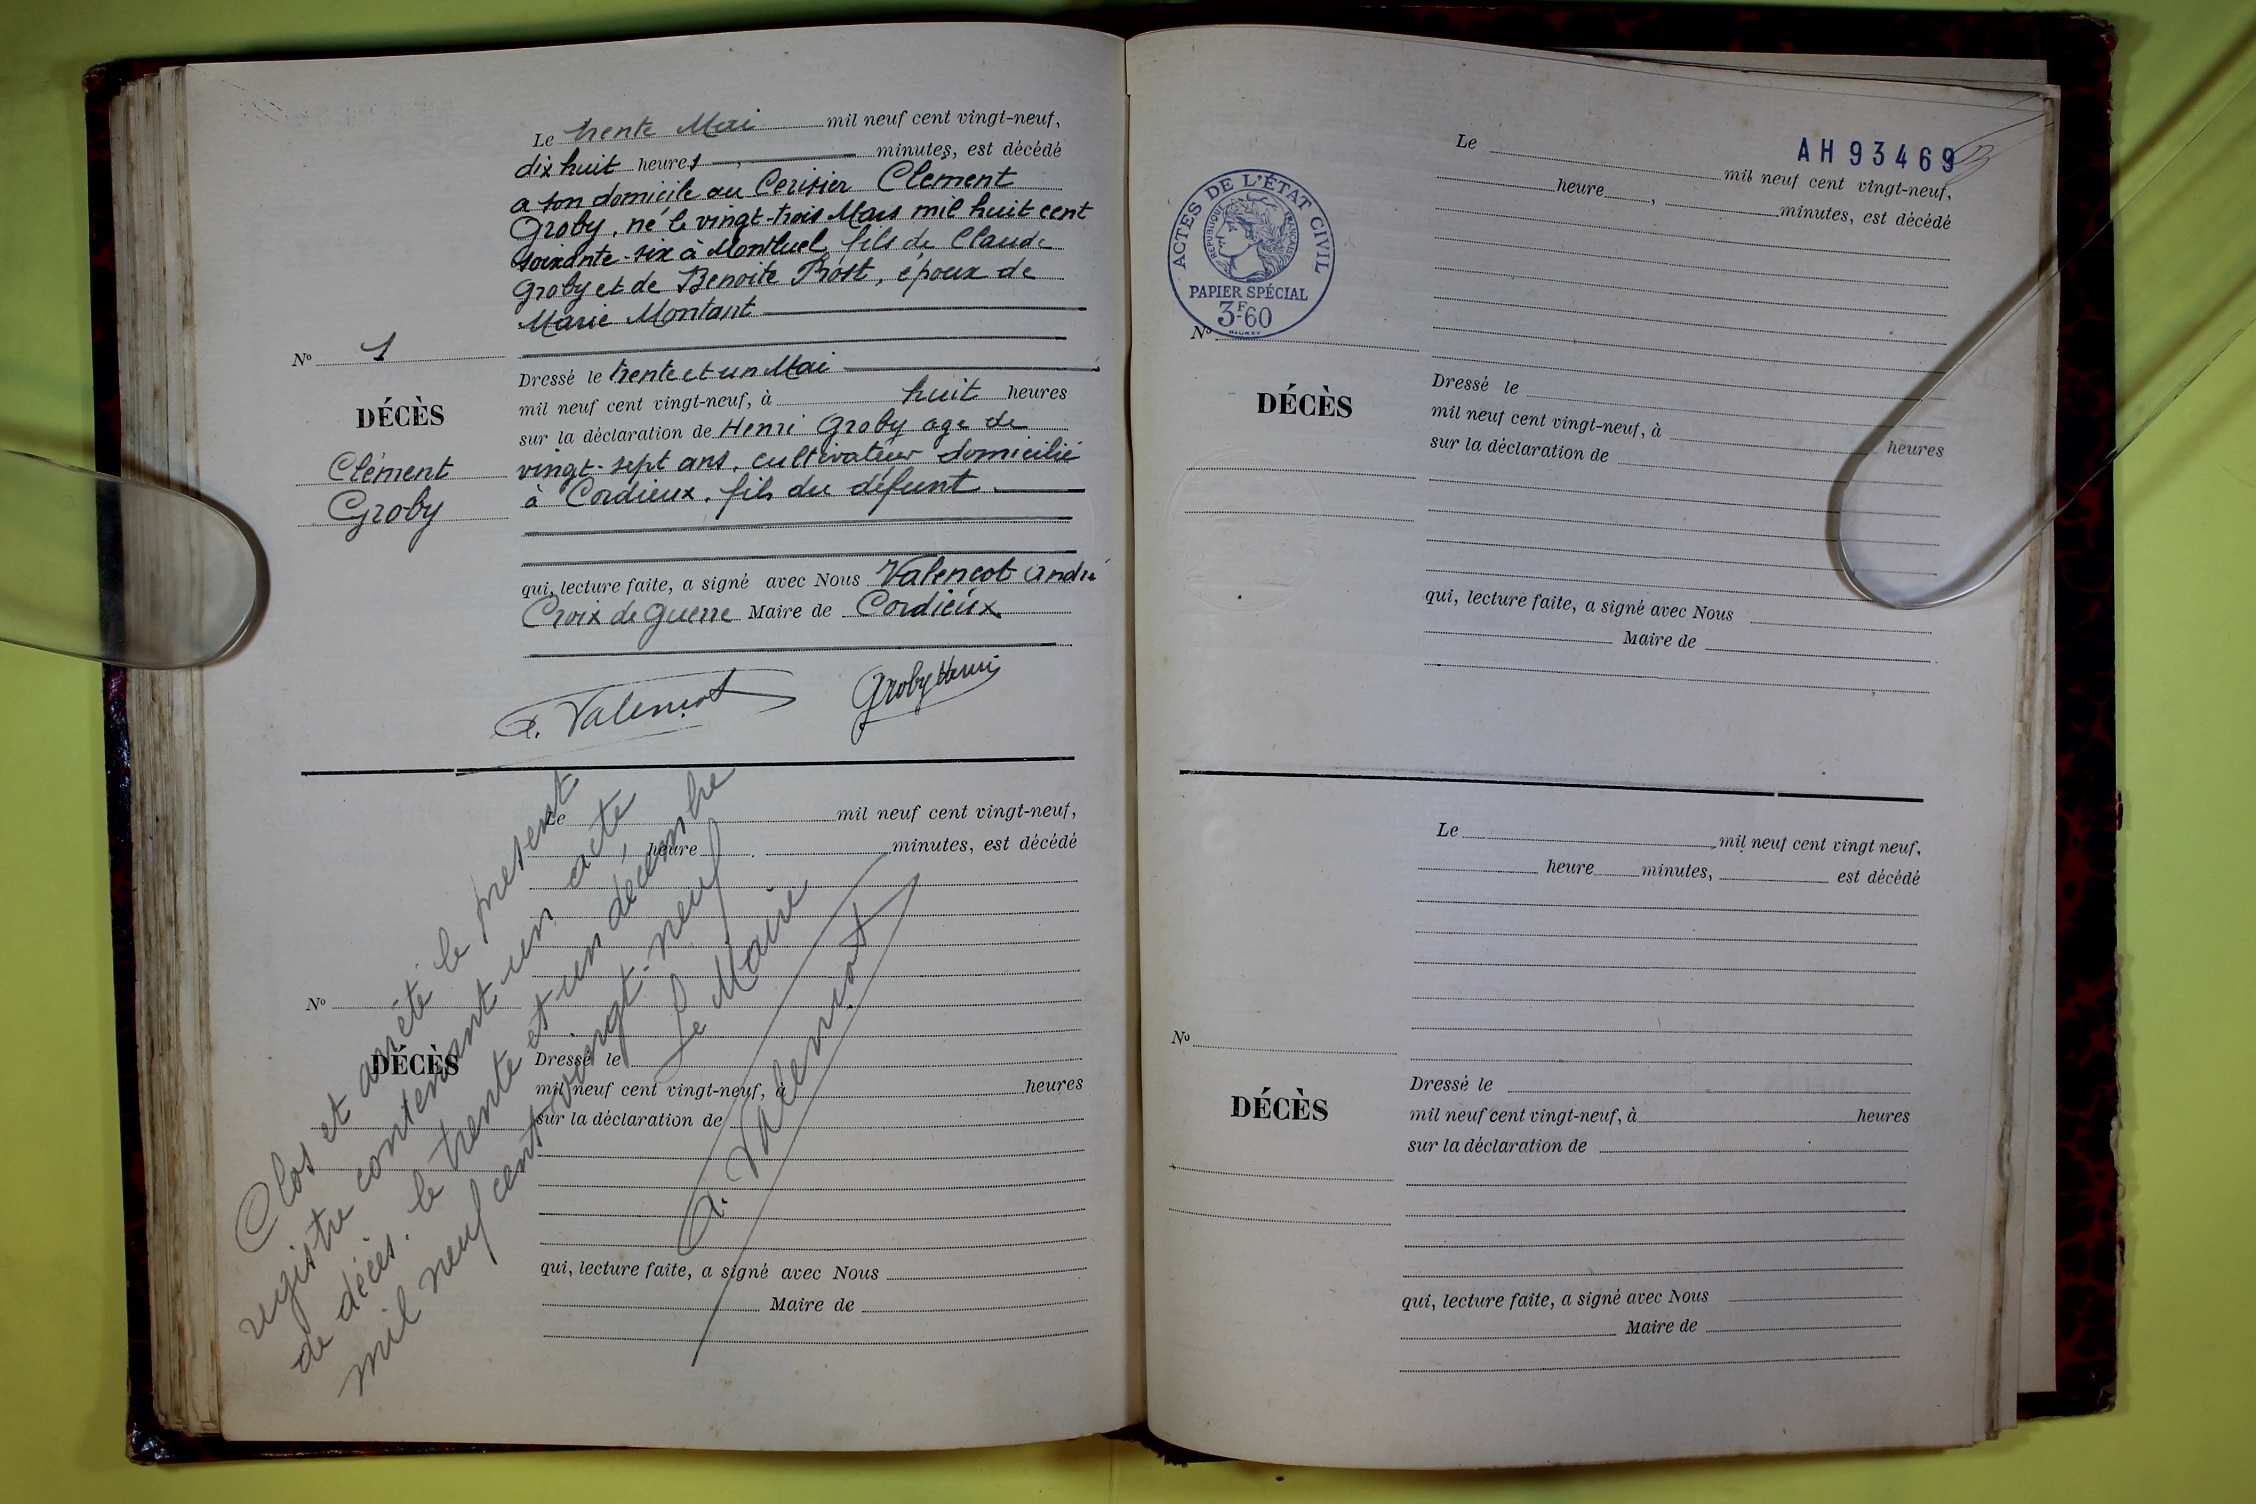 Le trente Mai mil neuf cent vingt-neuf,
dix huit heures, minutes, est décédé
a son domicile au Cerisier Clément
Groby, né le vingt-trois Mars mil huit cent
soixante-six à Montluel, fils de Claude
Groby et de Benoite Prost, époux de
Marie Montant
N° 1
DÉCÈS
Clément
Groby
Dressé le trente et un Mai
mil neuf cent vingt-neuf, à huit heures
sur la déclaration de Henri Groby age de
vingt-sept ans, cultivateur domicilié
à Cordieux, fils du défunt.
qui, lecture faite, a signé avec Nous Valencot André
Croix de guerre Maire de Cordieux
A. Valencot
Groby Henri
Le mil neuf cent vingt-neuf,
heure, minutes, est décédé
N°
DÉCÈS
Dressé le
mil neuf cent vingt-neuf, à heures
sur la déclaration de
qui, lecture faite, a signé avec Nous
Maire de
Clos et arrêté le présent
registre contenant un acte
de décès. le trente et un décembre
mil neuf cent vingt-neuf
Le Maire
A. Valencot
AH93469
Le mil neuf cent vingt-neuf,
heure, minutes, est décédé
ACTES DE L'ÉTAT CIVIL
RÉPUBLIQUE FRANÇAISE
PAPIER SPÉCIAL
3F-60
N°
DÉCÈS
Dressé le
mil neuf cent vingt-neuf, à heures
sur la déclaration de
qui, lecture faite, a signé avec Nous
Maire de
Le mil neuf cent vingt neuf,
heure minutes, est décédé
N°
DÉCÈS
Dressé le
mil neuf cent vingt-neuf, à heures
sur la déclaration de
qui, lecture faite, a signé avec Nous
Maire de